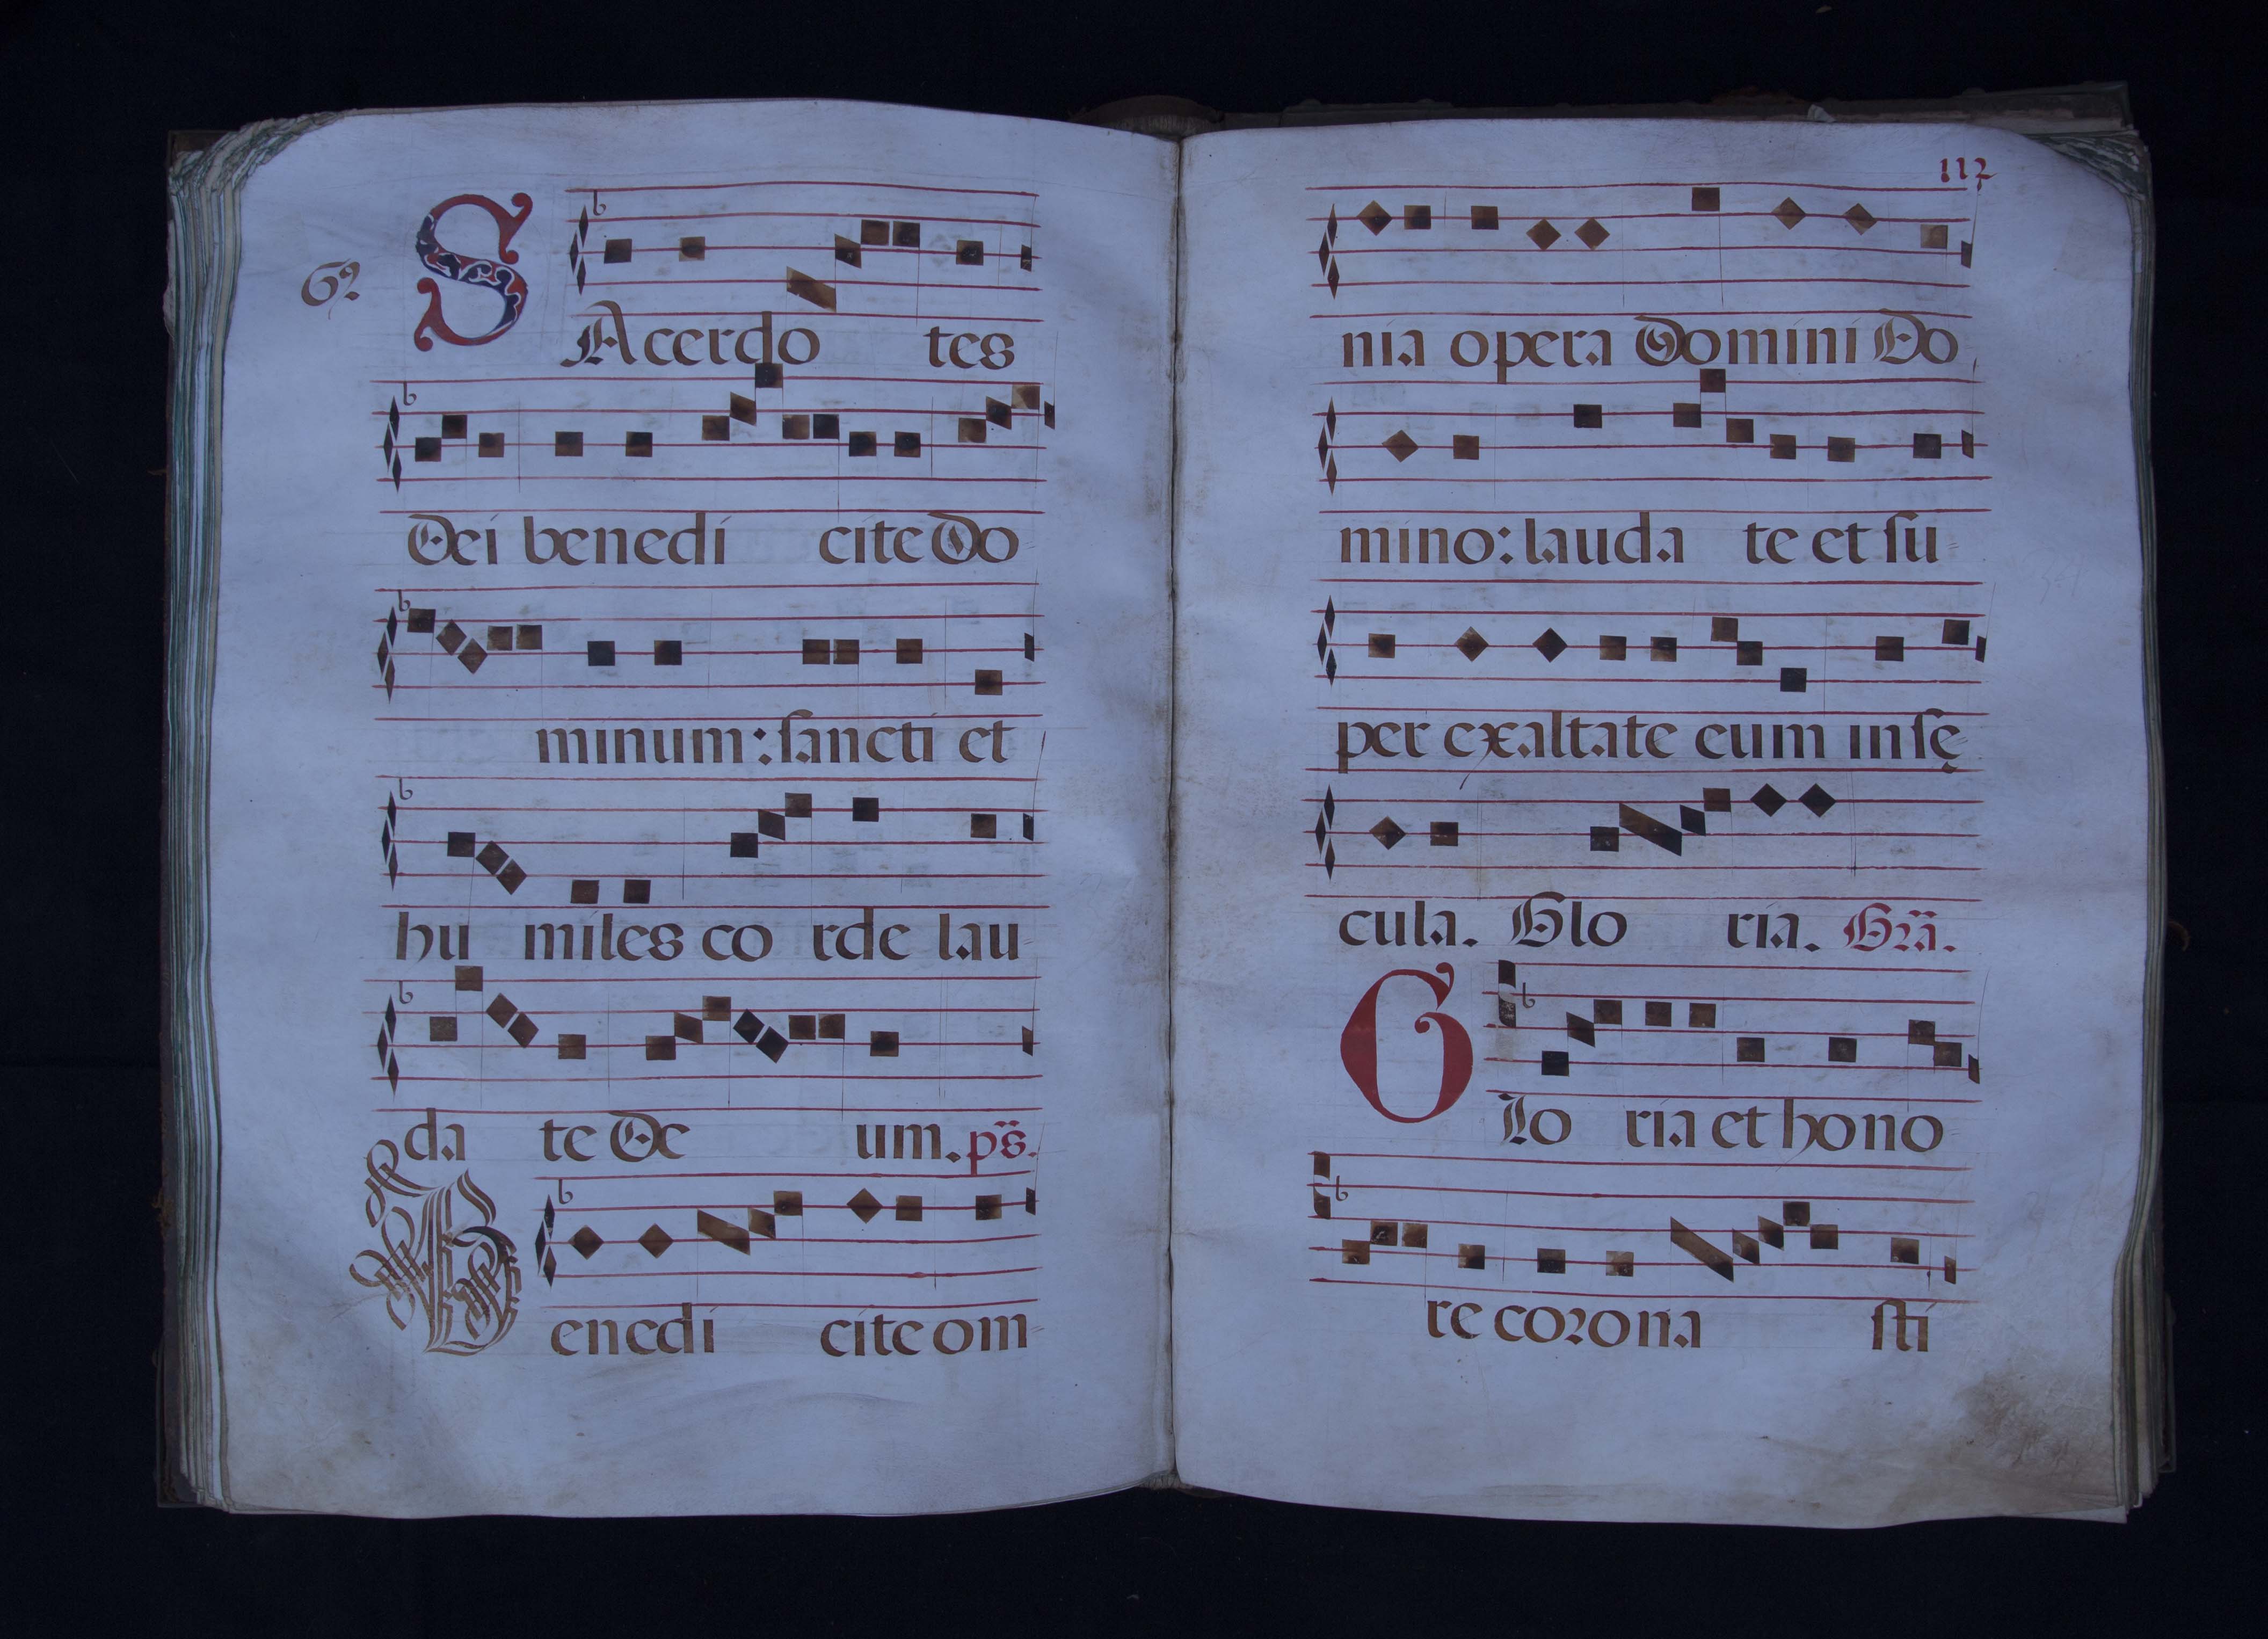 62
SAcerdo tes
Dei benedi cite Do
minum: ſancti et
hu miles co rde lau
da te De um. ps.
Benedi cite om
112
nia opera Domini Do
mino: lauda te et ſu
per exaltate eum in ſę
cula. Glo ria. Gra.
Glo ria et hono
re corona ſti